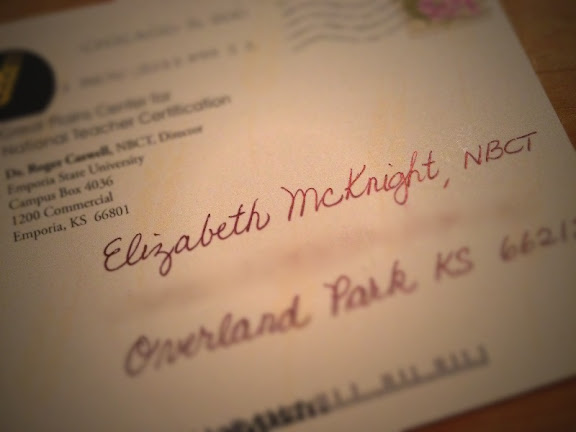 Great Plains Center for
National Teacher Certification
Dr. Roger Caswell, NBCT, Director
Emporia State University
Campus Box 4036
1200 Commercial
Emporia, KS 66801
Elizabeth McKnight, NBCT
Overland Park KS 66213